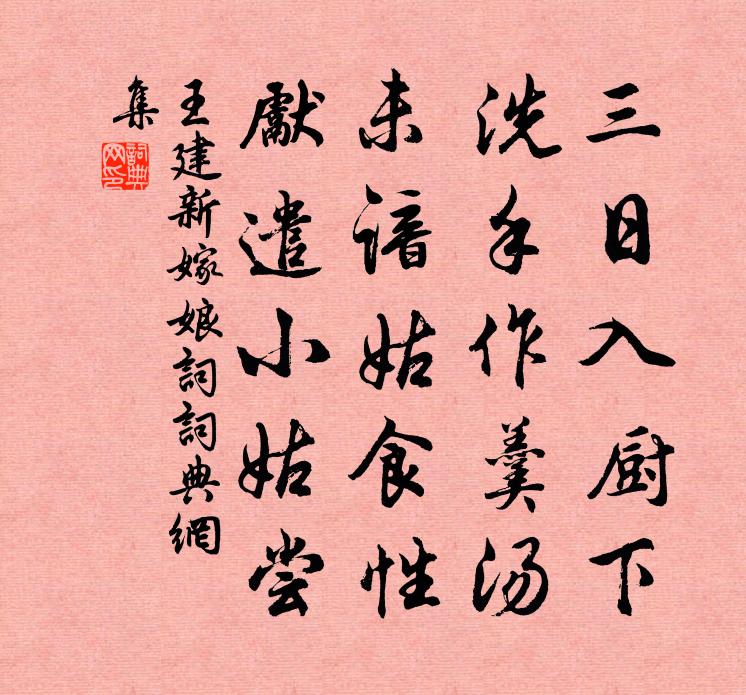 三日入厨下
洗手作羹汤
未谙姑食性
獻遣小姑尝
王建新嫁娘詞詞典網
集
詞典网印